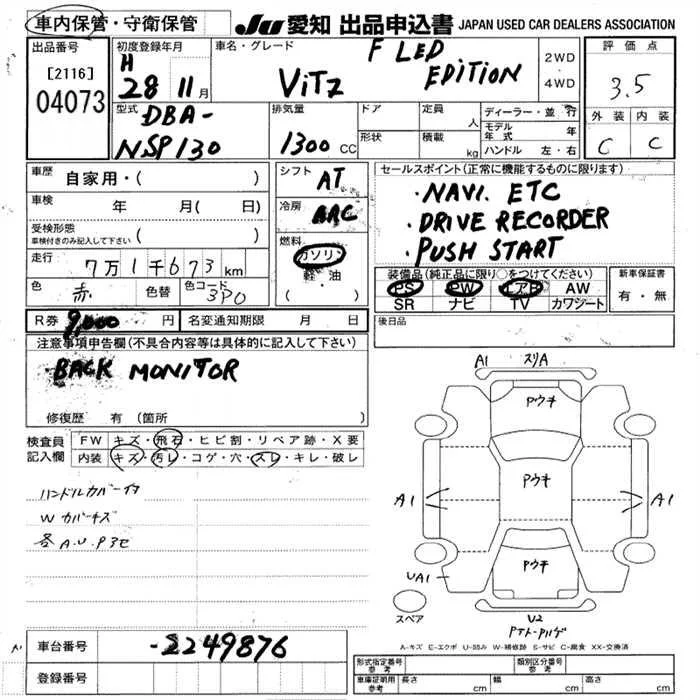 車内保管・守衛保管
JU 愛知 出品申込書 JAPAN USED CAR DEALERS ASSOCIATION
出品番号
[2116]
04073
初度登録年月
H
28 11月
車名・グレード
ViTZ F LED EDITION
2WD
・
4WD
評価点
3.5
外装 内装
C C
型式
DBA-
NSP130
排気量
1300 CC
ドア
形状
定員 人
積載 kg
ディーラー・並行
モデル年式 年
ハンドル 左・右
車歴 自家用・( )
車検 年 月( 日)
受検形態
車検付きのみ記入して下さい ( )
走行 7万1千673km
色 赤 色替 色コード 3P0
シフト AT
冷房 AAC
燃料
ガソリン
軽・油
セールスポイント(正常に機能するものに限ります)
・NAVI. ETC
・DRIVE RECORDER
・PUSH START
装備品(純正品に限り○をつけてください)
PS PW エアB AW
SR ナビ TV カワシート
新車保証書
有・無
R券 9,000円 名変通知期限 月 日
後日品
注意事項申告欄(不具合内容等は具体的に記入して下さい)
・BACK MONITOR
修復歴 有(箇所 )
検査員
記入欄
FW キズ・飛石・ヒビ割・リペア跡・X要
内装 キズ・汚レ・コゲ・穴・スレ・キレ・破レ
ハンドルカバー付
W カバーキズ
各A.U.P3セ
A1 スリA
Pウチ
A1 Pウチ A1
Pウチ
UA1
スペア
U2
A-キズ E-エクボ U-凹み W-補修跡 S-サビ C-腐食 XX-交換済
A1
車台番号 -2249876
登録番号
形式指定番号
参考
類別区分番号
参考
車庫証明用
参考
長さ cm 幅 cm 高さ cm